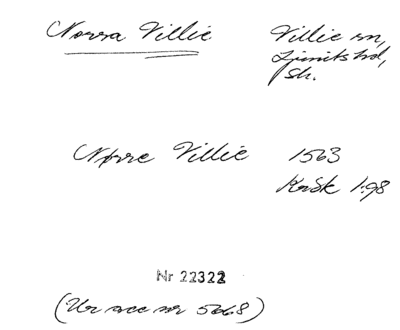 Norra Villie Villie sn,
Ljunits hd,
Sk.
Nørre Villie 1563
KoSk 1:98
Nr 22322
(Ur acc nr 5668)